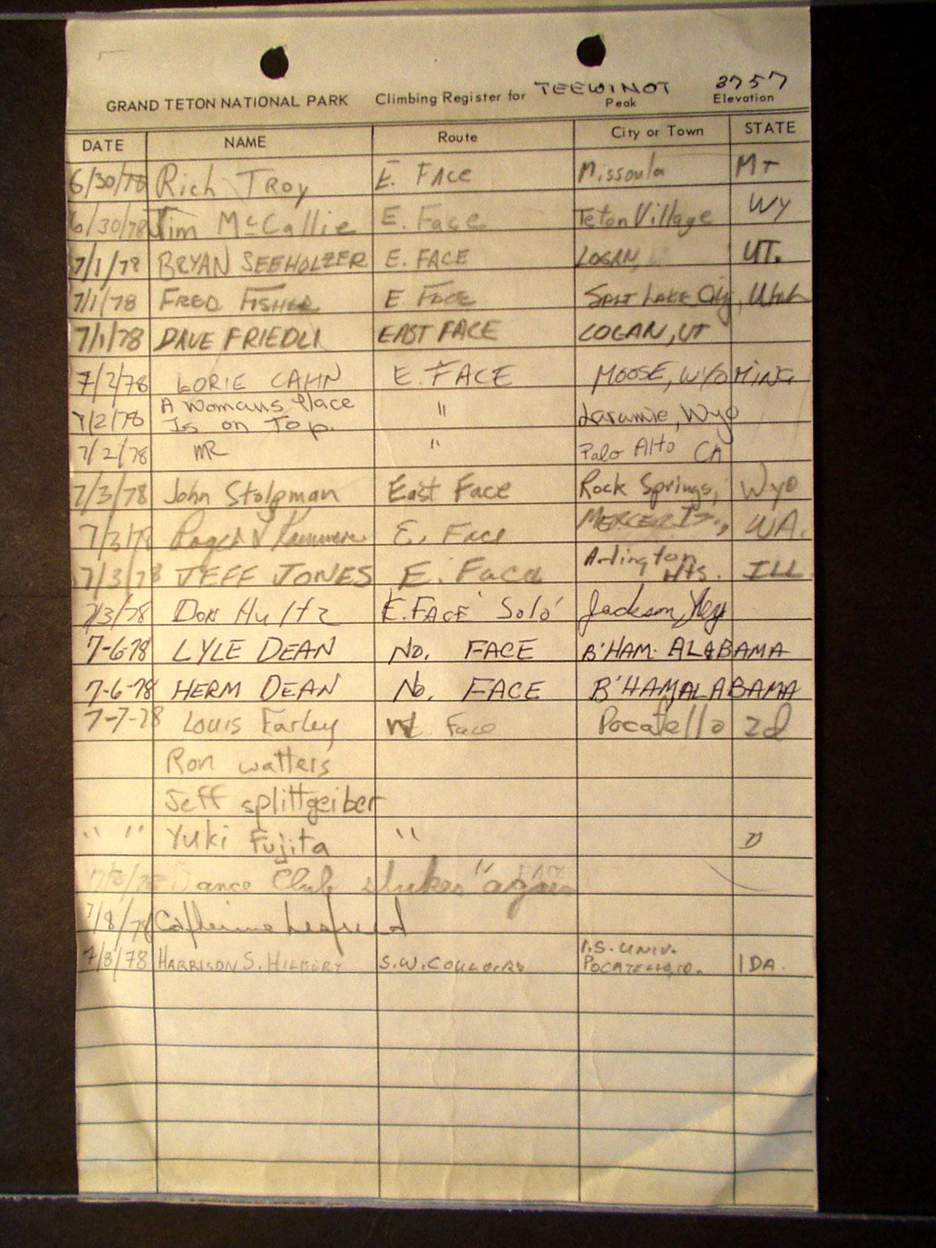 TEEWINOT 3757
GRAND TETON NATIONAL PARK Climbing Register for Peak Elevation
DATE NAME Route City or Town STATE
6/30/78 Rich Troy E. Face Missoula MT
6/30/78 Jim McCallie E. Face Teton Village WY
7/1/78 BRYAN SEEHOLZER E. FACE LOGAN, UT.
7/1/78 FRED FISHER E. FACE SALT LAKE City, Utah
7/1/78 DAVE FRIEDLI EAST FACE LOGAN, UT
7/2/78 LORIE CAHN E. FACE MOOSE, WYOMING
7/2/78 A Womans Place Is on Top. " Laramie, Wyo
7/2/78 MR " Palo Alto CA
7/3/78 John Stolpman East Face Rock Springs, Wyo
7/3/78 Roger E. Face MERCER IS., WA.
7/3/78 JEFF JONES E. Face Arlington Hts. ILL
7/3/78 Don Hultz E. FACE 'Solo' Jackson,
7-6-78 LYLE DEAN No. FACE B'HAM. ALABAMA
7-6-78 HERM DEAN No. FACE B'HAM ALABAMA
7-7-78 Louis Farley Face Pocatello Id
Ron watters
Jeff splittgeiber
" " Yuki Fujita "
Dance Club strikes again
7/8/78 Catherine
7/8/78 HARRISON S. HILBERY S.W. COULOIRS I.S. UNIV. POCATELLO, ID. IDA.